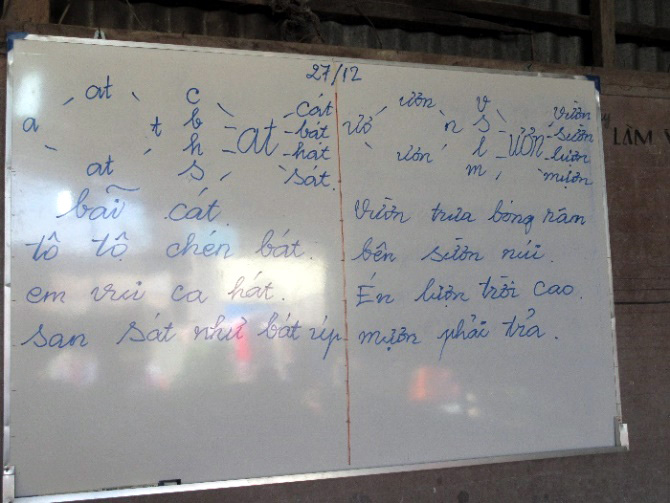 27/12
at
a t
at
c
b
h
s
at
cát
bát
hát
sát.
bãi cát.
tô tộ chén bát.
em vui ca hát.
san sát như bát úp
ươn
ươ n
ươn
v
s
l
m
ươn
vườn
sườn
lượn
mượn
Vườn trưa bóng râm
bên sườn núi.
Én lượn trời cao.
mượn phải trả.
LÀM V